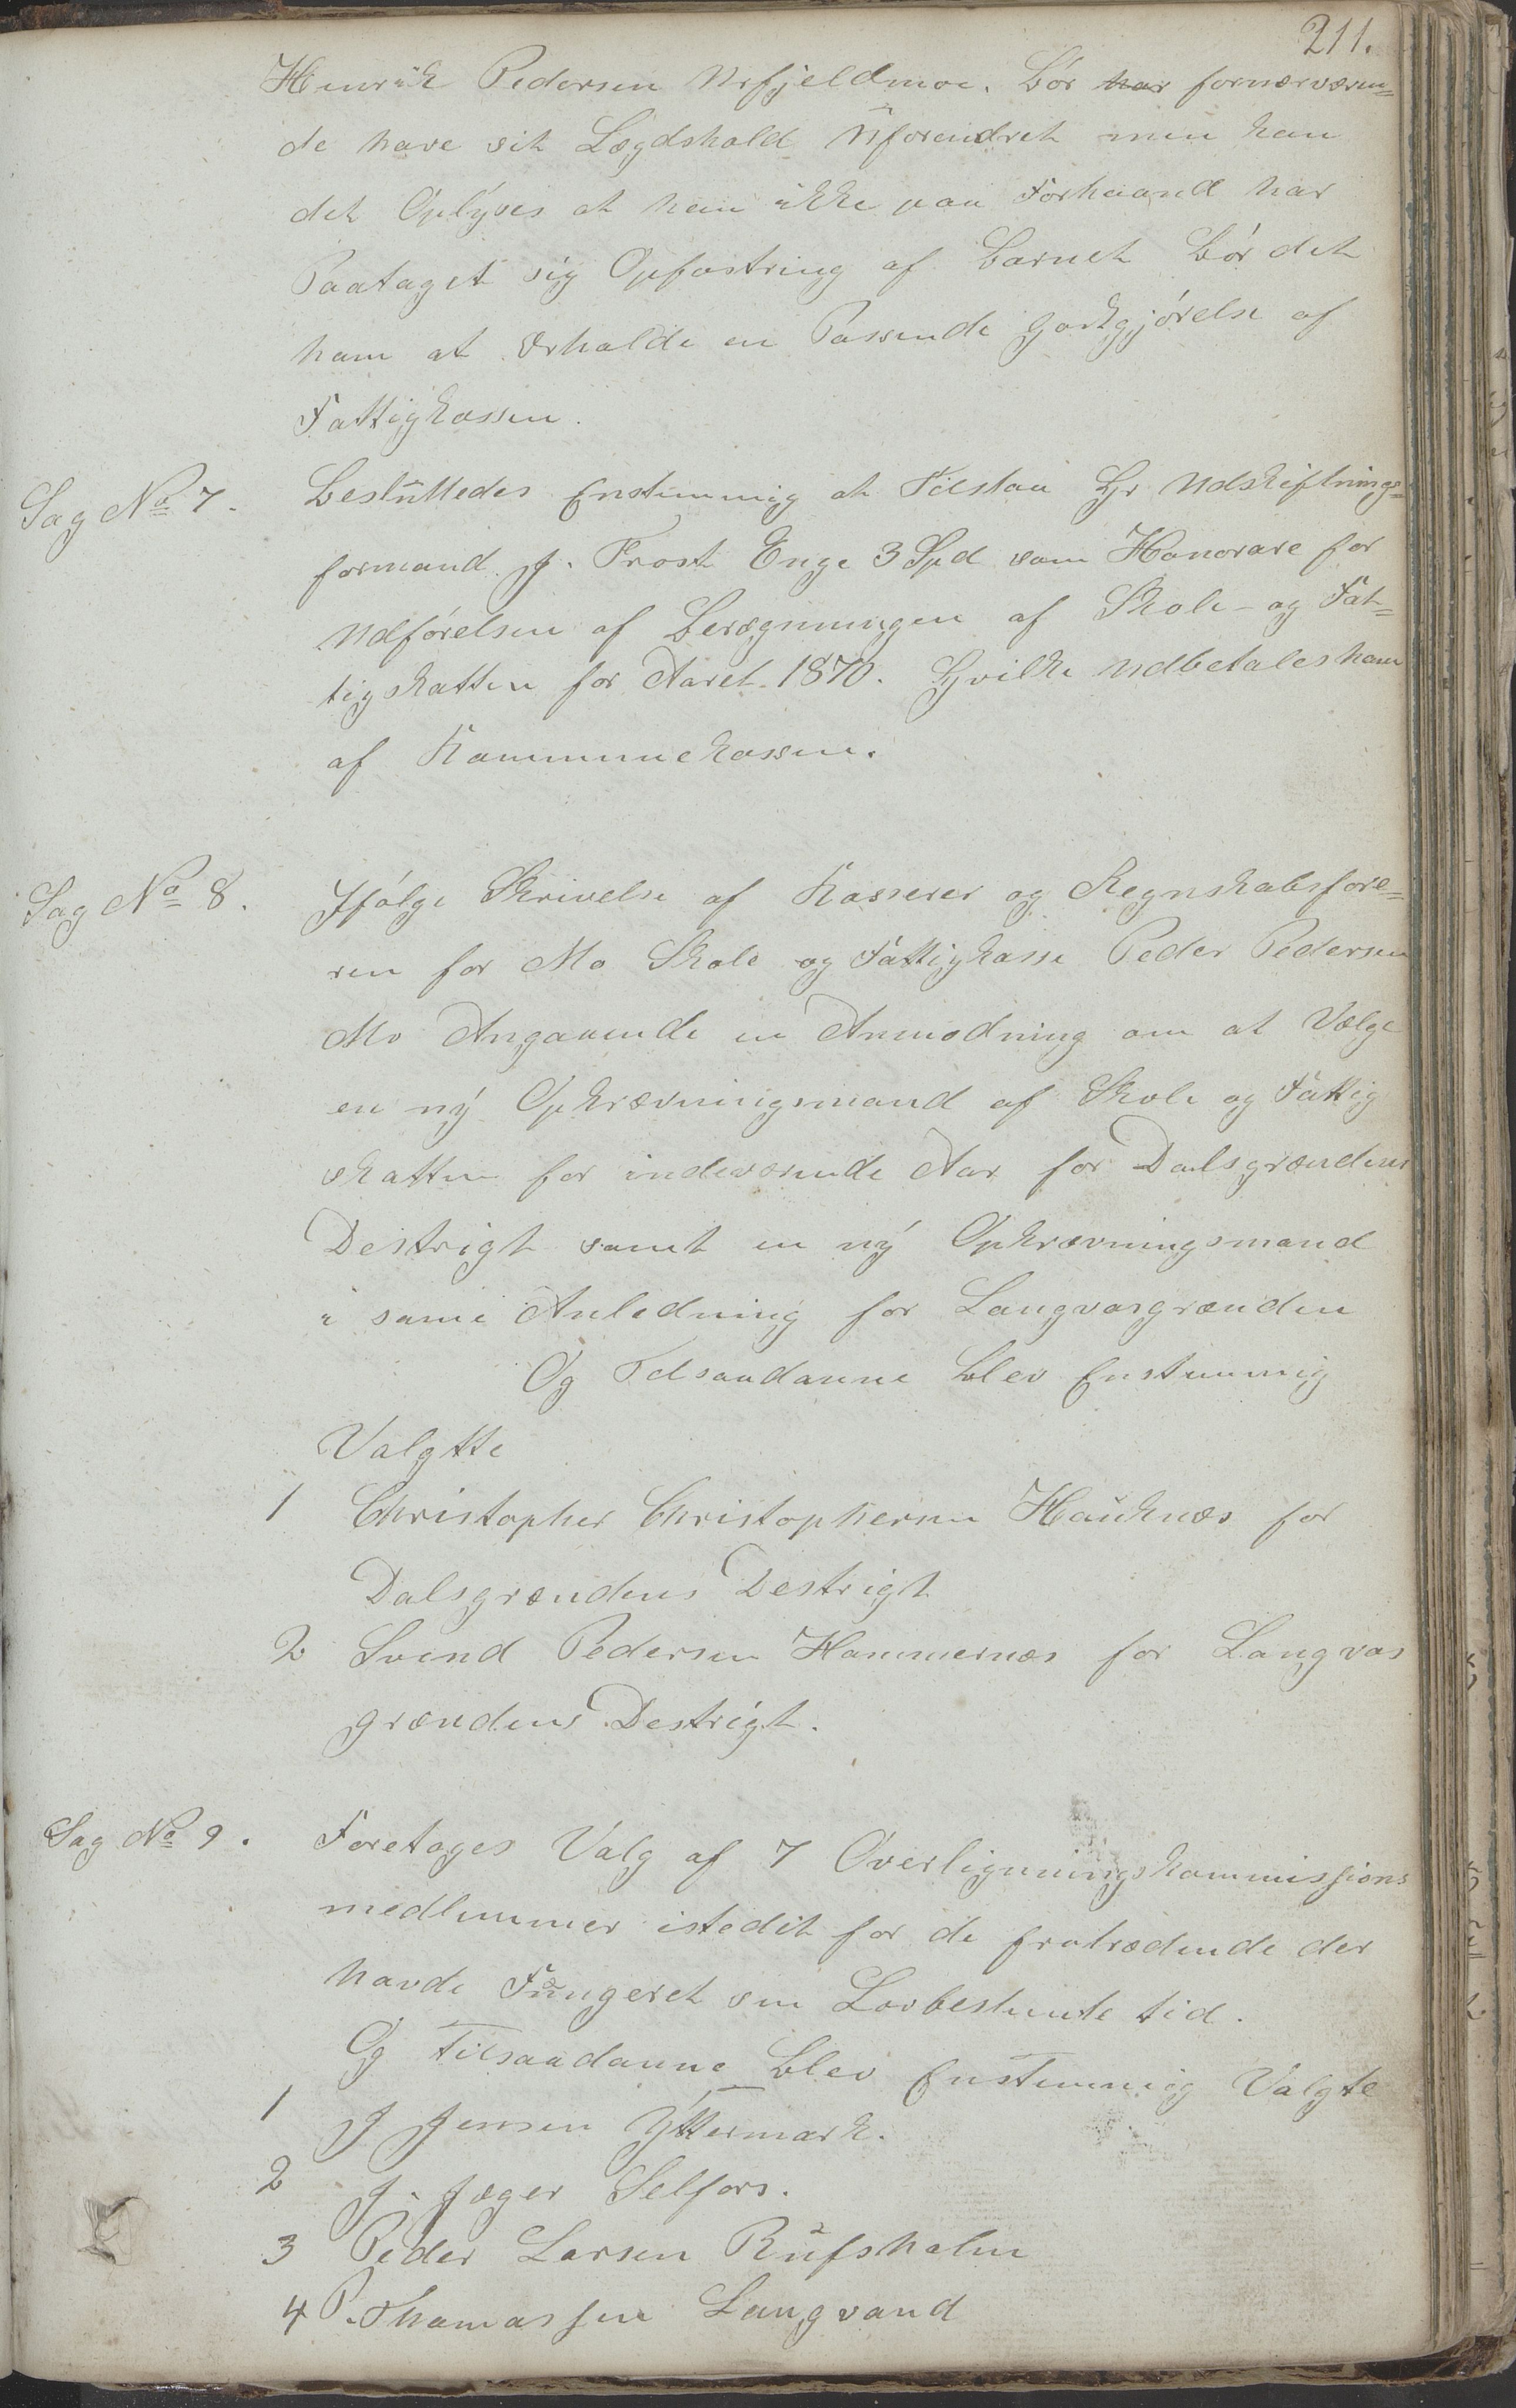 211.
Henrik Pedersen Urfjeldmoe. Bör har fornærværen=
de have sit Lægdshold Uforendret men kan
det Oplyses at han ikke paa Forhaand har
Paataget sig Opfostring af Barnet bör det
ham at Erholde en Passende Godtgjörelse af
Fattigkassen.
Sag No 7. Besluttedes Enstimmig at Tilstaa Hr Udskiftnings=
formand J. Frost Enge 3 Spd som Honorare for
Udförelsen af Beregnningen af Skole- og Fat=
tigskatten for Aaret 1870. Hvilke Udbetales ham
af Kommunekassen.
Sag No 8. Ifölge Skrivelse af Kasserer og Regnskabsföre=
ren for Mo Skole og Fattigkasse Peder Pedersen
Mo Angaaende en Anmodning om at Vælge
en ny Opkrævningsmand af Skole og Fattig
skatten for indeværende Aar for Dalsgrændens
Destrigt samt en ny Opkrævningsmand
i same Anledning for Langvasgrænden
Og Telsaadanne blev Enstemmig
Valgtte
1 Christopher Christophersen Hauknæs for
Dalsgrændens Destrigt
2 Svend Pedersen Hammernæs for Langvas
grændens Destrigt.
Sag No 9. Foretoges Valg af 7 Overligningskommissions
medlemmer istedit for de fratrædende der
havde Fungeret sin Lovbestemte tid.
Og Tilsaadanne blev Enstemmig Valgte
1 J Jensen Yttermark.
2 J. Jæger Selfors.
3 Peder Larsen Rufsholm
4 P. Thomassen Langvand